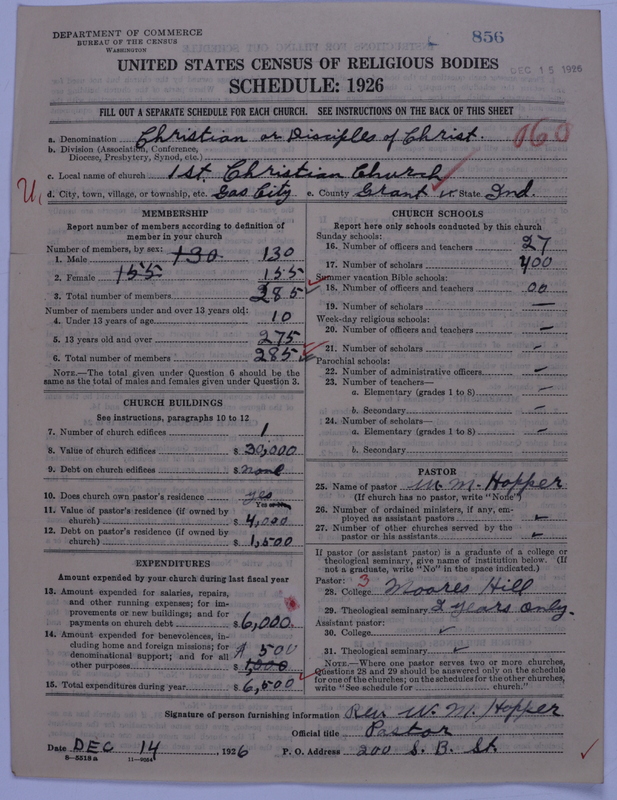 DEPARTMENT OF COMMERCE
BUREAU OF THE CENSUS
WASHINGTON
856
UNITED STATES CENSUS OF RELIGIOUS BODIES
DEC 15 1926
SCHEDULE: 1926
FILL OUT A SEPARATE SCHEDULE FOR EACH CHURCH. SEE INSTRUCTIONS ON THE BACK OF THIS SHEET
a. Denomination Christian or Disciples of Christ. 060
b. Division (Association, Conference,
Diocese, Presbytery, Synod, etc.)
c. Local name of church 1st. Christian Church
U. d. City, town, village, or township, etc. Gas City e. County Grant State Ind.
MEMBERSHIP
Report number of members according to definition of
member in your church
Number of members, by sex:
1. Male 130 130
2. Female 155 155
3. Total number of members 285
Number of members under and over 13 years old:
4. Under 13 years of age 10
5. 13 years old and over 275
6. Total number of members 285
NOTE.—The total given under Question 6 should be
same as the total of males and females given under Question 3.
CHURCH BUILDINGS
See instructions, paragraphs 10 to 12
7. Number of church edifices 1
8. Value of church edifices $ 30,000
9. Debt on church edifices $ None
10. Does church own pastor's residence yes
Yes or No
11. Value of pastor's residence (if owned by
church) $ 4,000
12. Debt on pastor's residence (if owned by
church) $ 1,500
EXPENDITURES
Amount expended by church during last fiscal year
13. Amount expended for salaries, repairs,
and other running expenses; for im-
provements or new buildings; and for
payments on church debt $ 6,000
14. Amount expended for benevolences, in-
cluding home and foreign missions; for
denominational support; and for all
other purposes $ 500
1,000
15. Total expenditures during year $ 6,500
CHURCH SCHOOLS
Report here only schools conducted by this church
Sunday schools:
16. Number of officers and teachers 27
17. Number of scholars 400
Summer vacation Bible schools:
18. Number of officers and teachers 00
19. Number of scholars —
Week-day religious schools:
20. Number of officers and teachers —
21. Number of scholars —
Parochial schools:
22. Number of administrative officers —
23. Number of teachers—
a. Elementary (grades 1 to 8) —
b. Secondary —
24. Number of scholars—
a. Elementary (grades 1 to 8) —
b. Secondary
PASTOR
25. Name of pastor W. M. Hopper
(If church has no pastor, write "None")
26. Number of ordained ministers, if any, em-
ployed as assistant pastors
27. Number of other churches served by the
pastor or his assistants
If pastor (or assistant pastor) is a graduate of a college or
theological seminary, give name of institution below. (If
not a graduate, write "No" in the space indicated.)
Pastor: 3
28. College Moores Hill
29. Theological seminary 2 years only.
Assistant pastor:
30. College
31. Theological seminary
NOTE.—Where one pastor serves two or more churches,
Questions 28 and 29 should be answered only on the schedule
for one of the churches; on the schedules for the other churches,
write "See schedule for church."
Signature of person furnishing information Rev. W. M. Hopper
Official title Pastor
Date DEC 14, 1926 P. O. Address 200 S. B. St.
8—5518a 11—9064